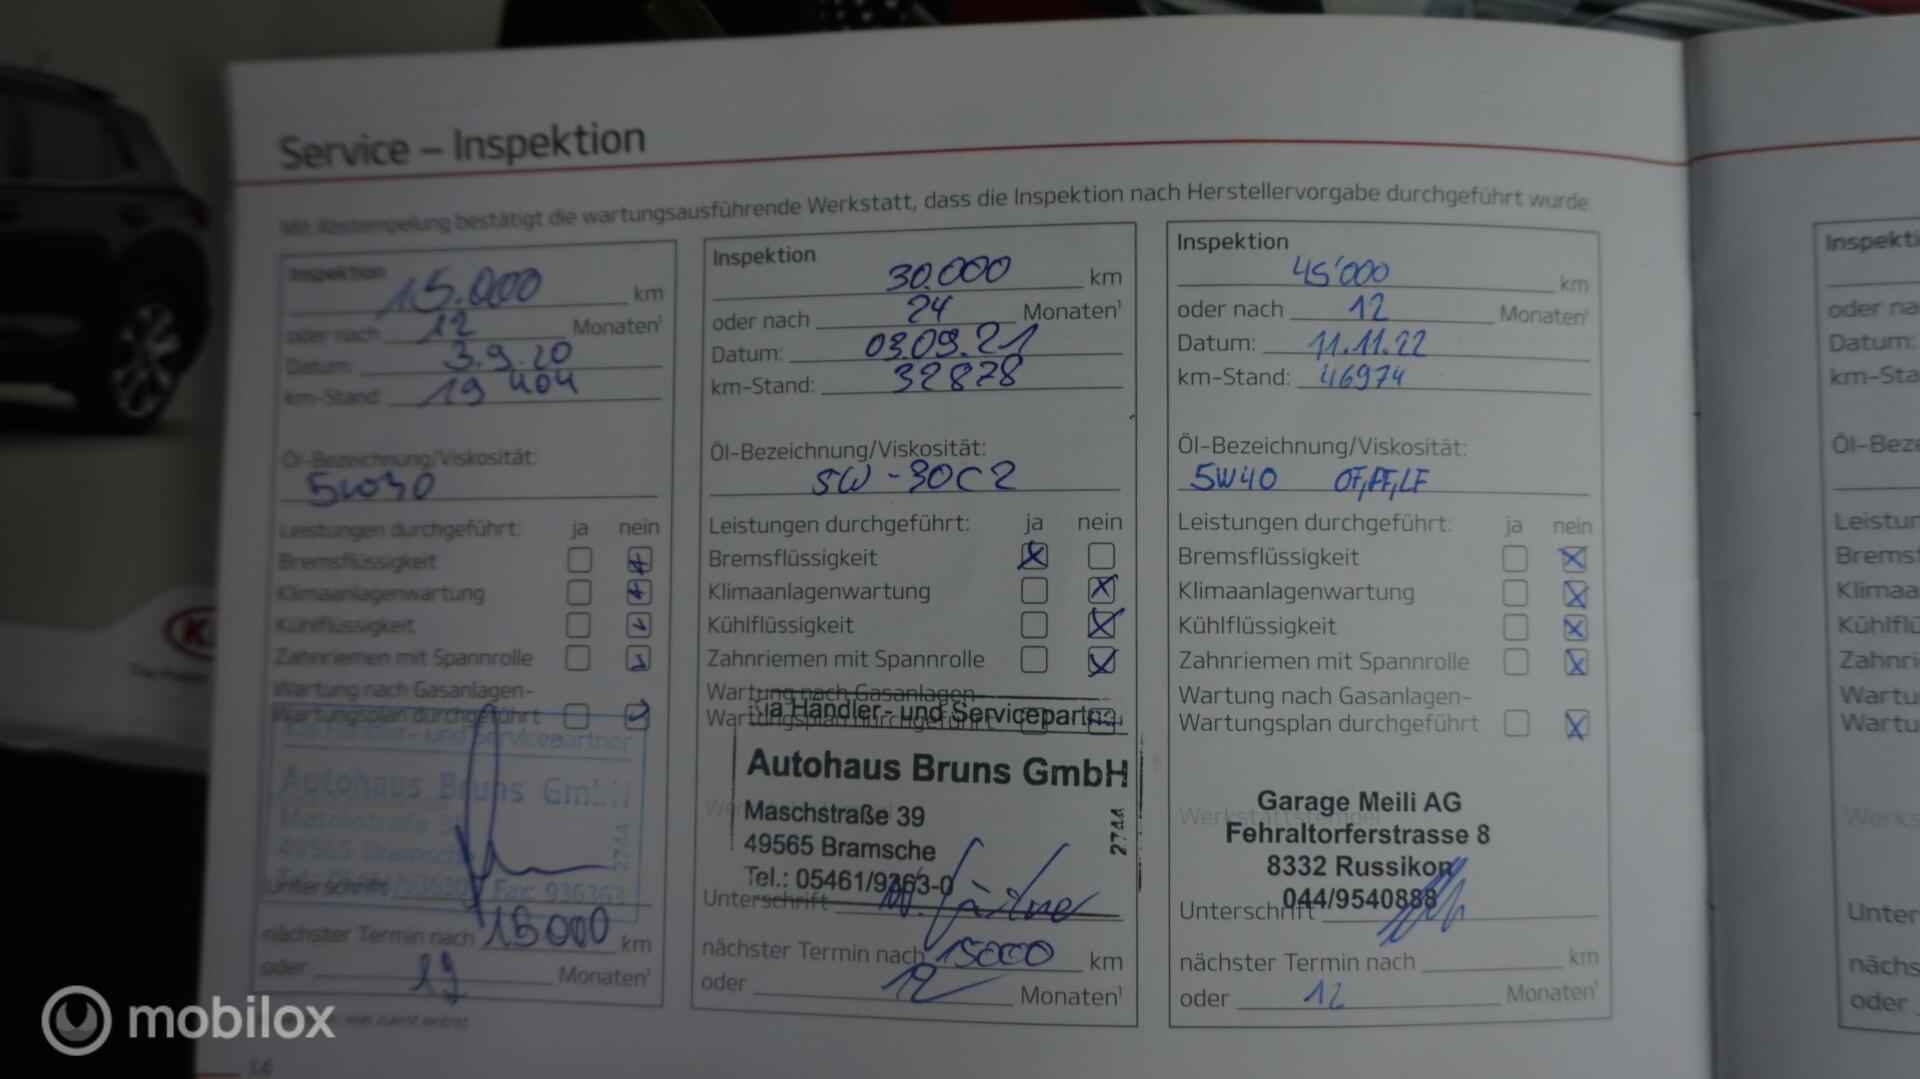 Service – Inspektion
Mit Abstempelung bestätigt die wartungsausführende Werkstatt, dass die Inspektion nach Herstellervorgabe durchgeführt wurde.
Inspektion
15.000 km
oder nach 12 Monaten¹
Datum: 3.9.20
km-Stand: 19 404
Öl-Bezeichnung/Viskosität:
5W30
Leistungen durchgeführt: ja nein
Bremsflüssigkeit
Klimaanlagenwartung
Kühlflüssigkeit
Zahnriemen mit Spannrolle
Wartung nach Gasanlagen-
Wartungsplan durchgeführt
Händler- und Servicepartner
Autohaus Bruns GmbH
Maschstraße 39
49565 Bramsche
2744
Fax: 936363
Unterschrift
nächster Termin nach 15000 km
oder Monaten¹
Inspektion
30.000 km
oder nach 24 Monaten¹
Datum: 03.09.21
km-Stand: 32878
Öl-Bezeichnung/Viskosität:
5W-30C2
Leistungen durchgeführt: ja nein
Bremsflüssigkeit
Klimaanlagenwartung
Kühlflüssigkeit
Zahnriemen mit Spannrolle
Wartung nach Gasanlagen-
Wartungsplan durchgeführt
Kia Händler- und Servicepartner
Autohaus Bruns GmbH
Maschstraße 39
49565 Bramsche
Tel.: 05461/9363-0
2744
Unterschrift
nächster Termin nach 15000 km
oder 12 Monaten¹
Inspektion
45'000 km
oder nach 12 Monaten¹
Datum: 11.11.22
km-Stand: 46974
Öl-Bezeichnung/Viskosität:
5W40 OF,PF,LF
Leistungen durchgeführt: ja nein
Bremsflüssigkeit
Klimaanlagenwartung
Kühlflüssigkeit
Zahnriemen mit Spannrolle
Wartung nach Gasanlagen-
Wartungsplan durchgeführt
Werkstattstempel
Garage Meili AG
Fehraltorferstrasse 8
8332 Russikon
044/9540888
Unterschrift
nächster Termin nach km
oder 12 Monaten¹
14
mobilox